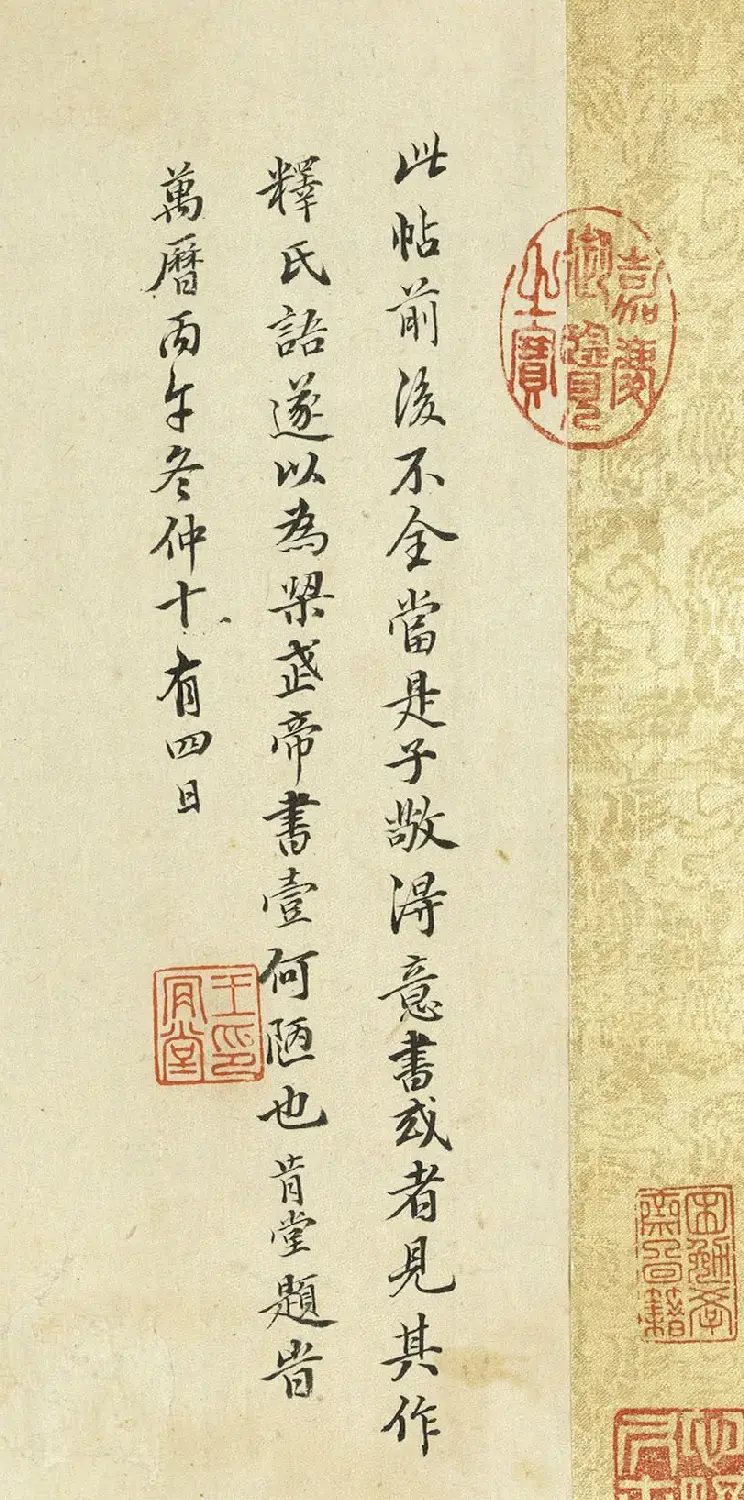 嘉慶
御覽
之寶
此帖前後不全當是子敬得意書或者見其作
釋氏語遂以為梁武帝書壹何陋也肯堂題旹
萬曆丙午冬仲十有四日
王印
肯堂